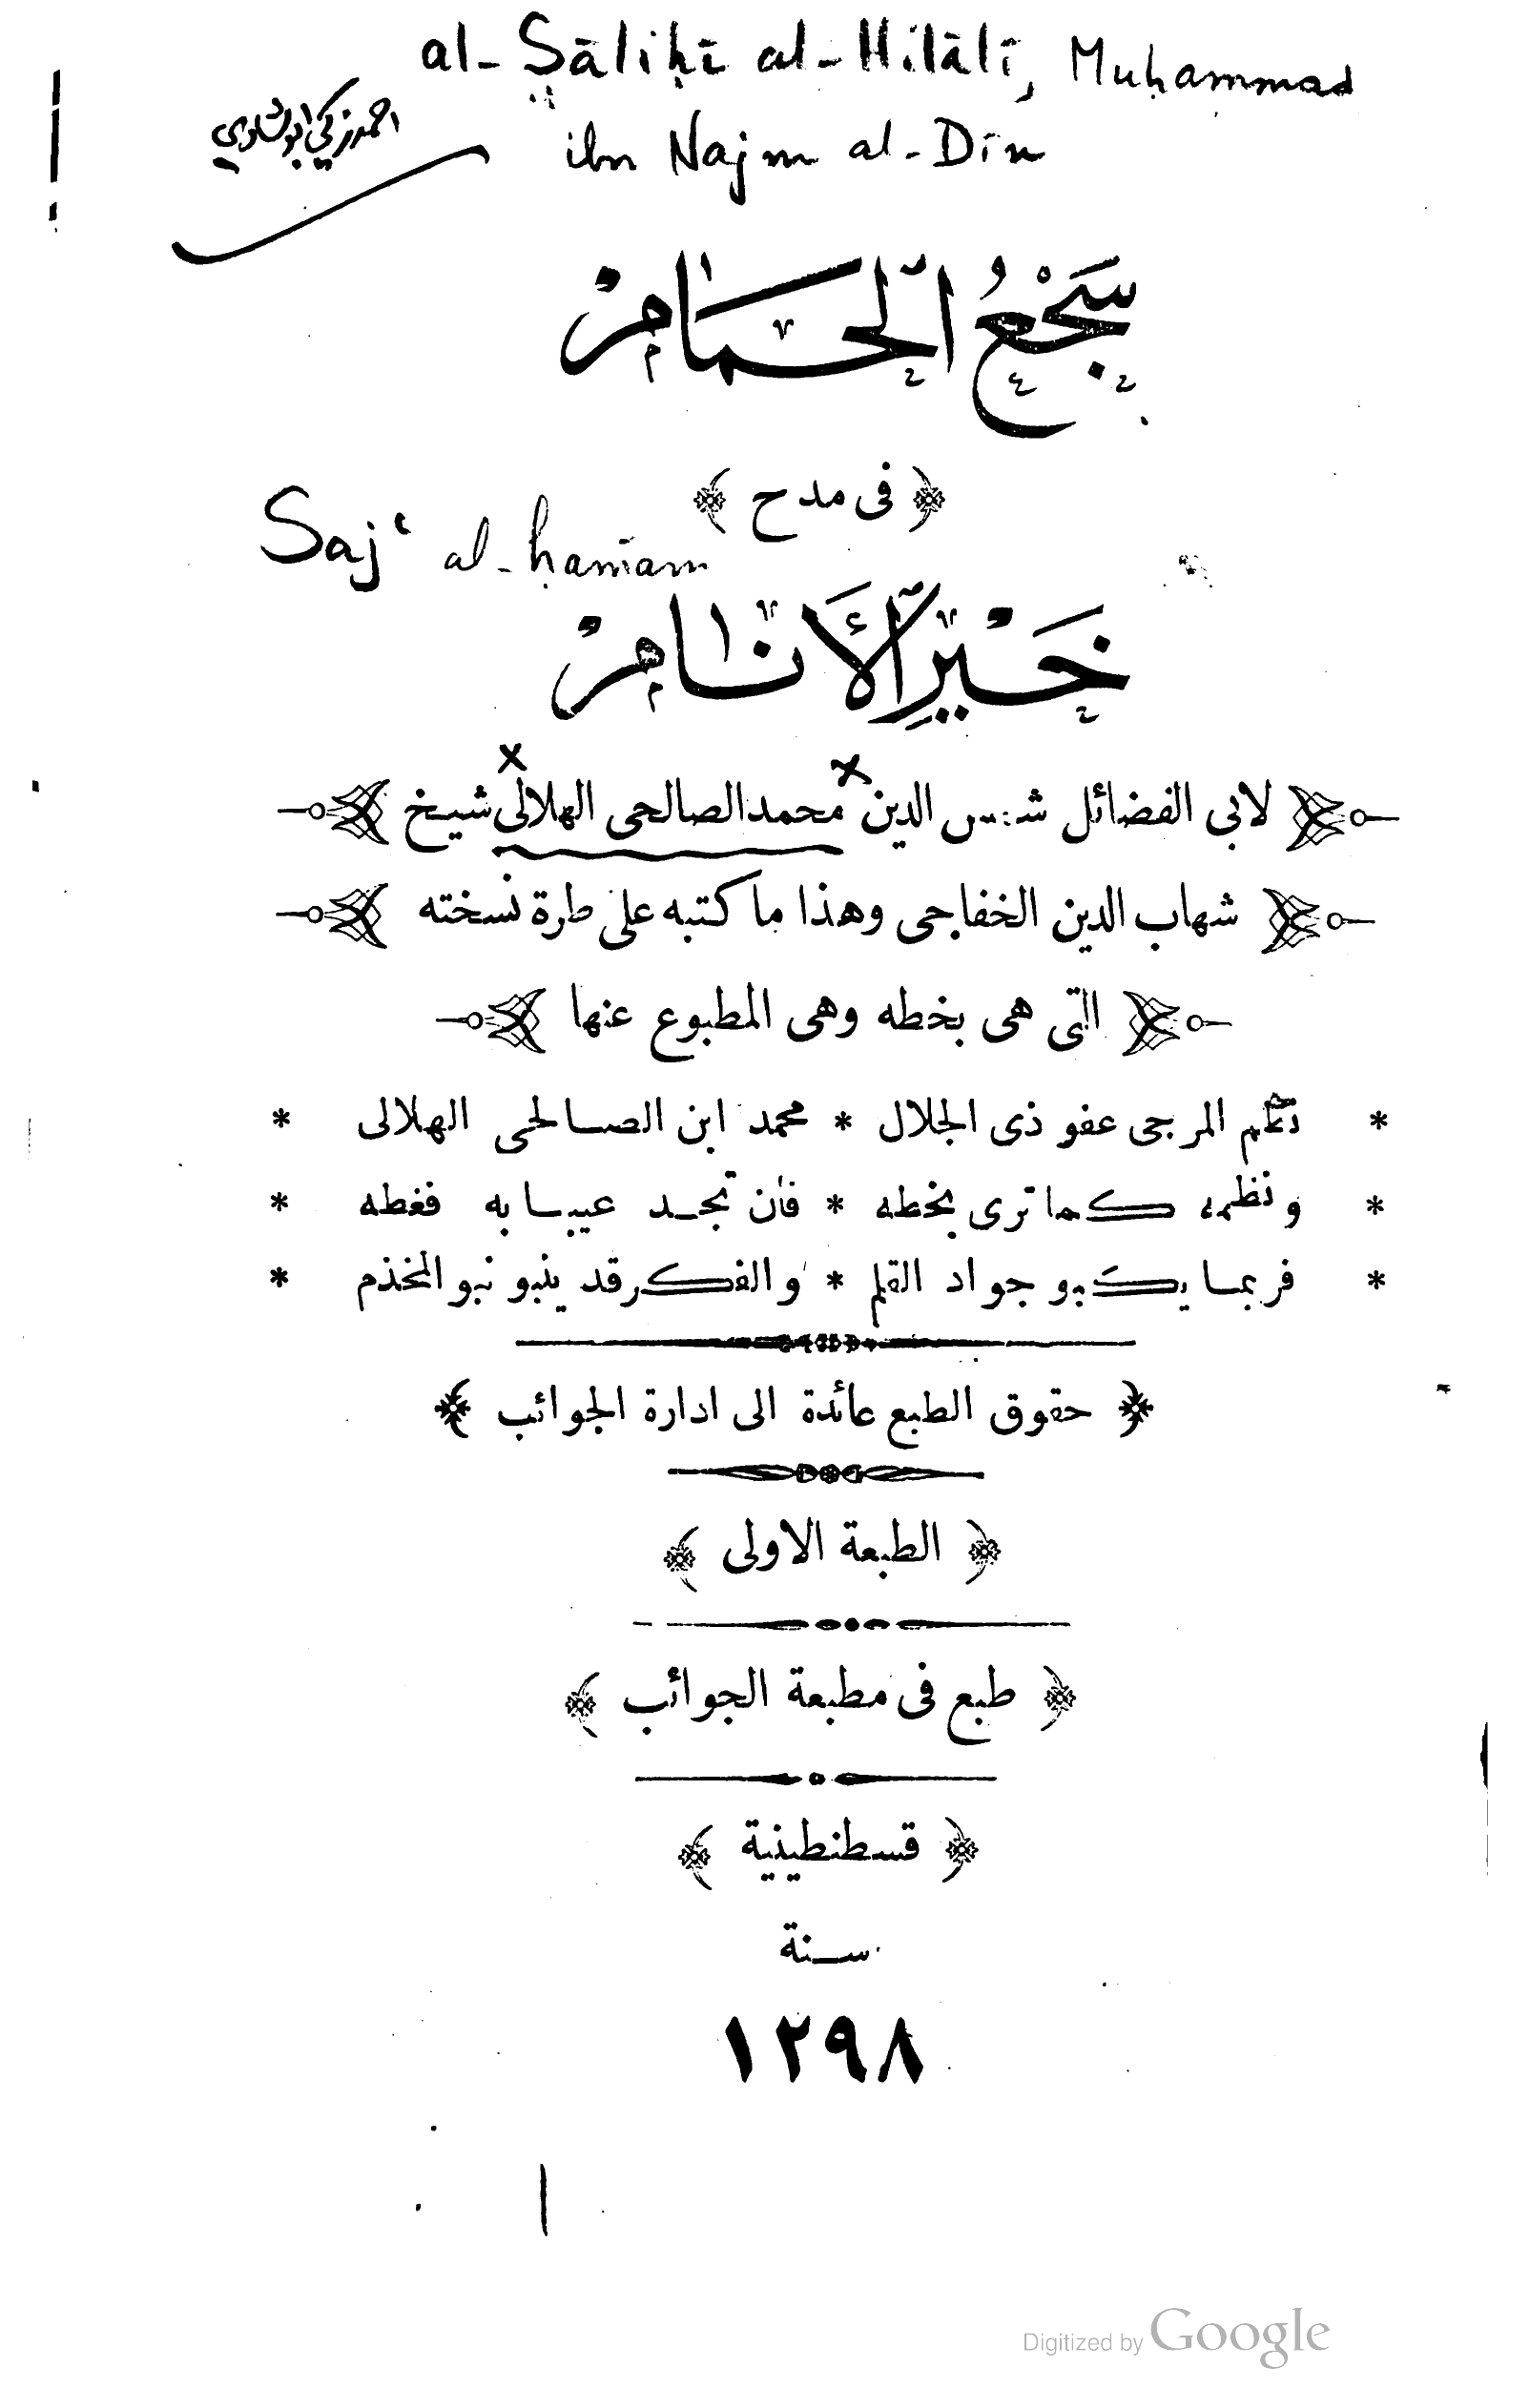 al-Ṣāliḥī al-Hilālī, Muḥammad
احمد زكي ابو شادي
ibn Najm al-Dīn
سَجْعُ الْحَمَامْ
﴿ فى مدح ﴾
Saj‘ al-ḥamām
خَيْرِ الْأَنَامْ
لابى الفضائل شمس الدين محمد الصالحى الهلالى شيخ
شهاب الدين الخفاجى وهذا ما كتبه على طرة نسخته
التى هى بخطه وهى المطبوع عنها
* نظم المرجى عفو ذى الجلال * محمد ابن الصالحى الهلالى *
* ونظمه كما ترى بخطه * فان تجد عيبا به فغطه *
* فربما يكبو جواد القلم * والفكر قد ينبو نبو المخذم *
﴿ حقوق الطبع عائدة الى ادارة الجوائب ﴾
﴿ الطبعة الاولى ﴾
﴿ طبع فى مطبعة الجوائب ﴾
﴿ قسطنطينية ﴾
سنة
١٢٩٨
Digitized by Google